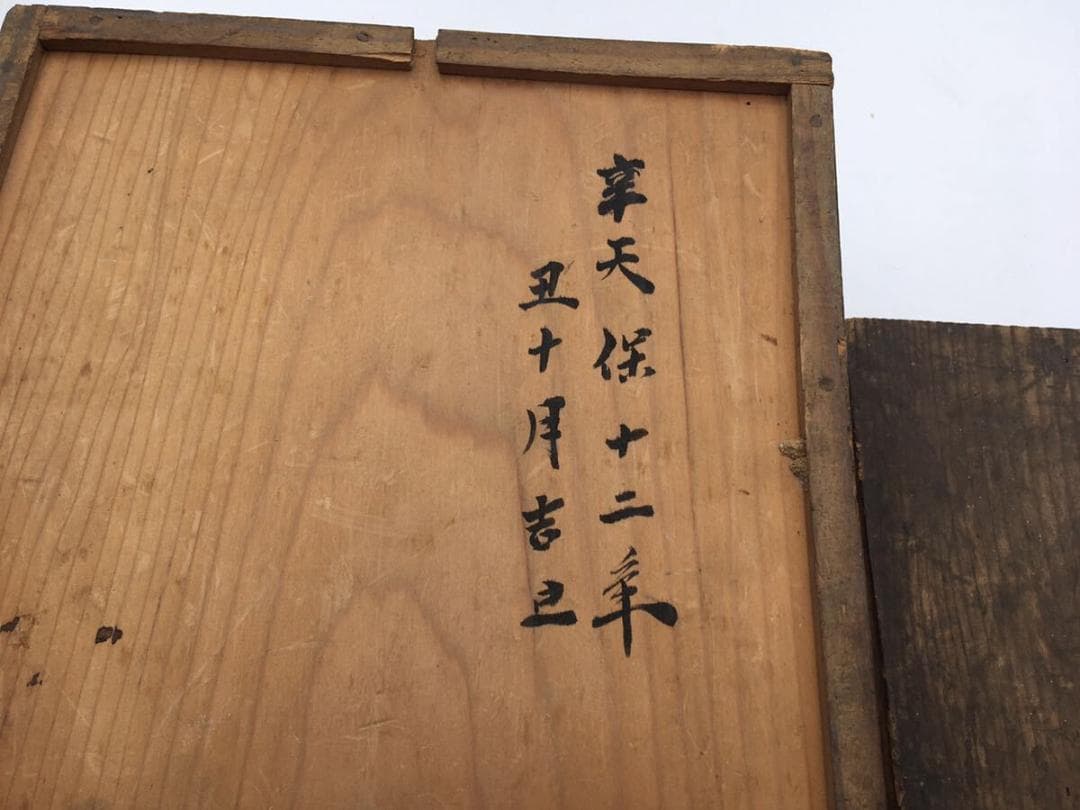 辛天保十二年
丑十月吉旦